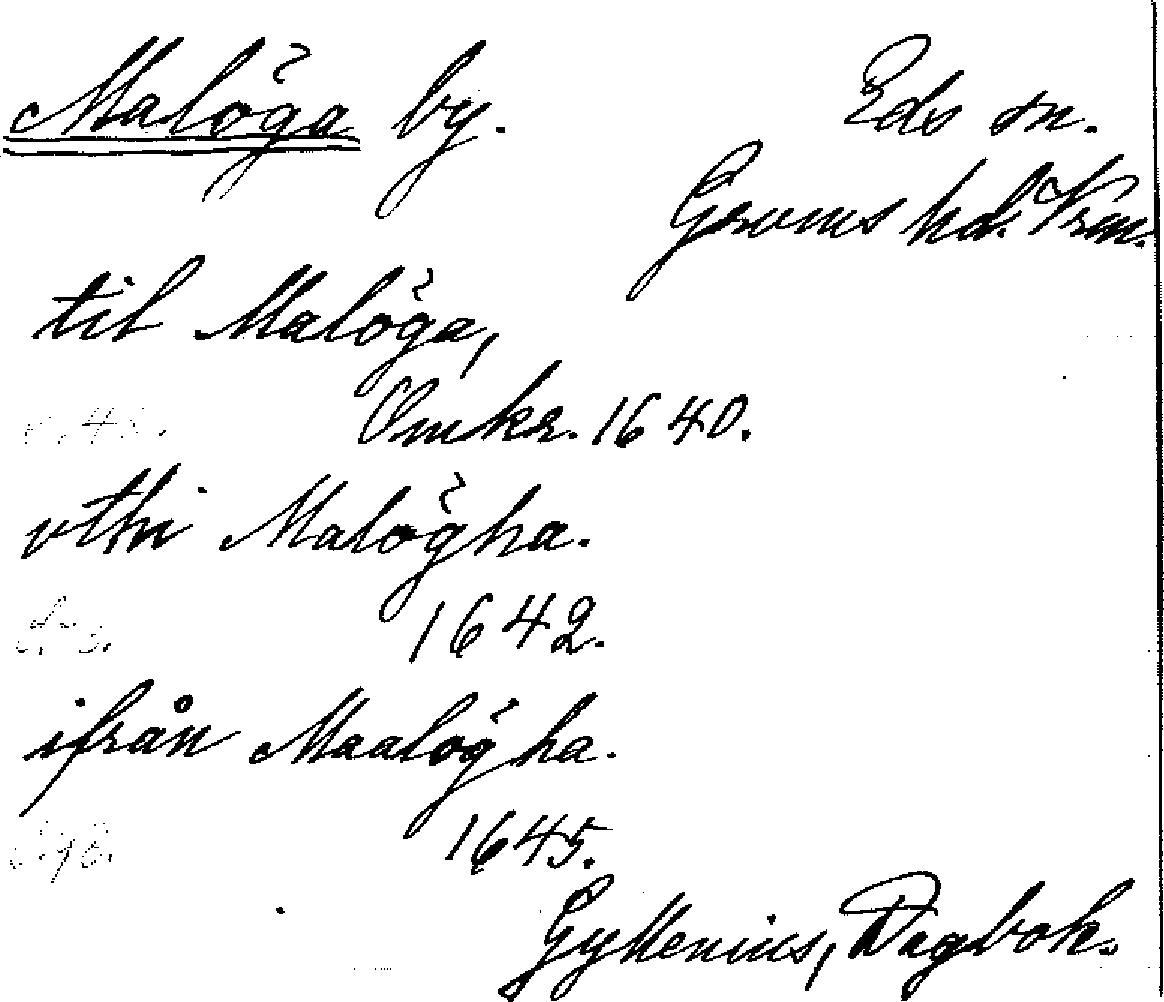 Malöga by. Eds sn.
Grums hd. Vrm.
til Malöga,
Omkr. 1640.
vthi Malögha.
1642.
ifrån Maalögha.
1645.
Gyllenius, Dagbok.